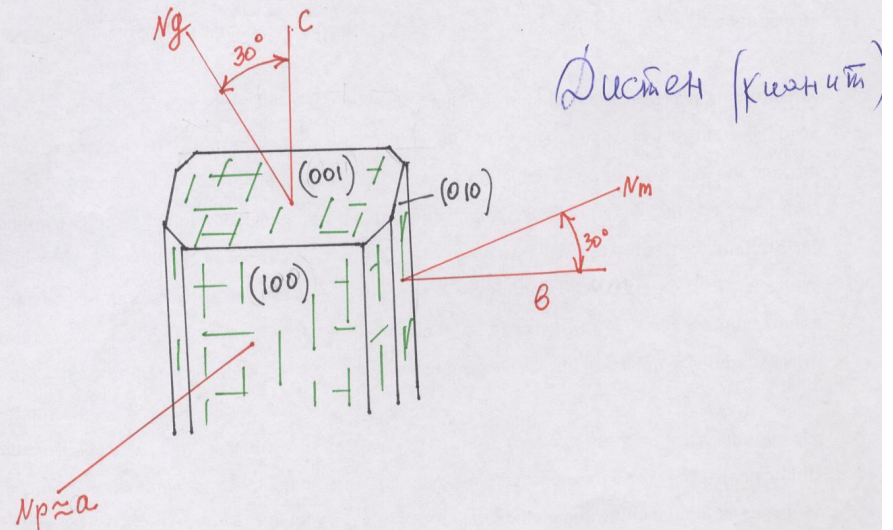 Ng
30°
C
Дистен (кианит)
(001)
(010)
Nm
30°
(100)
в
Np≈a